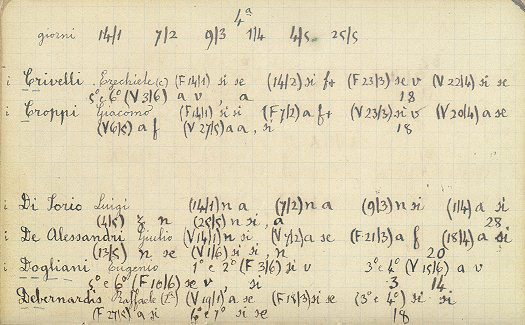 4ª
giorni 14/1 7/2 9/3 1/4 4/5 25/5
i Crivelli Ezechiele (c) (F 14/1) si se (14/2) si f+ (F 23/3) se v (V 22/4) si se
5° e 6° (V 3/6) a v, a 18
i Croppi Giacomo (F 14/1) si si (F 7/2) a f+ (V 23/3) si v (V 20/4) a se
(V 6/5) a f (V 27/5) a a, si 18
i Di Iorio Luigi (14/1) n a (7/2) n a (9/3) n si (1/4) a si
(4/5) n (25/5) n si, a 28
i De Alessandri Giulio (V 14/1) n si (V 7/2) a se (F 21/3) a f (18/4) a si
(13/5) n se (V 1/6) si si, n 20
i Dogliani Eugenio 1° e 2° (F 3/6) si v 3° e 4° (V 15/6) a v
5° e 6° (F 10/6) se v, si 3 14
Debernardis Raffaele (V 19/1) a se (F 18/3) si se (3° e 4°) si si
(F 27/5) a si 6° e 7° si se 18